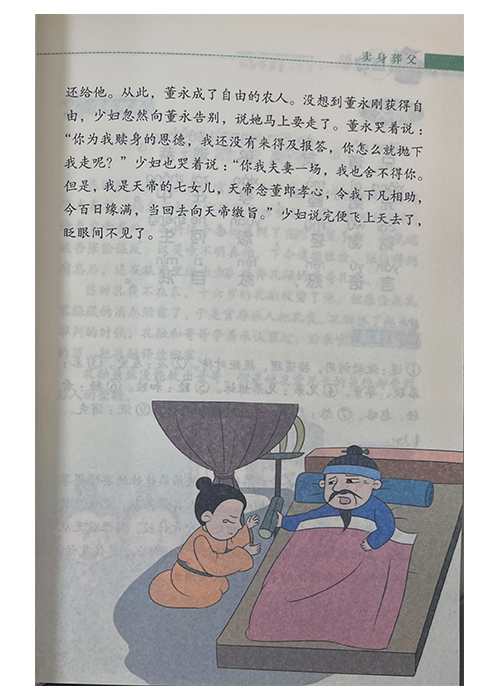 卖身葬父
还给他。从此，董永成了自由的农人。没想到董永刚获得自
由，少妇忽然向董永告别，说她马上要走了。董永哭着说：
“你为我赎身的恩德，我还没有来得及报答，你怎么就抛下
我走呢？”少妇也哭着说：“你我夫妻一场，我也舍不得你。
但是，我是天帝的七女儿，天帝念董郎孝心，令我下凡相助，
今百日缘满，当回去向天帝缴旨。”少妇说完便飞上天去了，
眨眼间不见了。